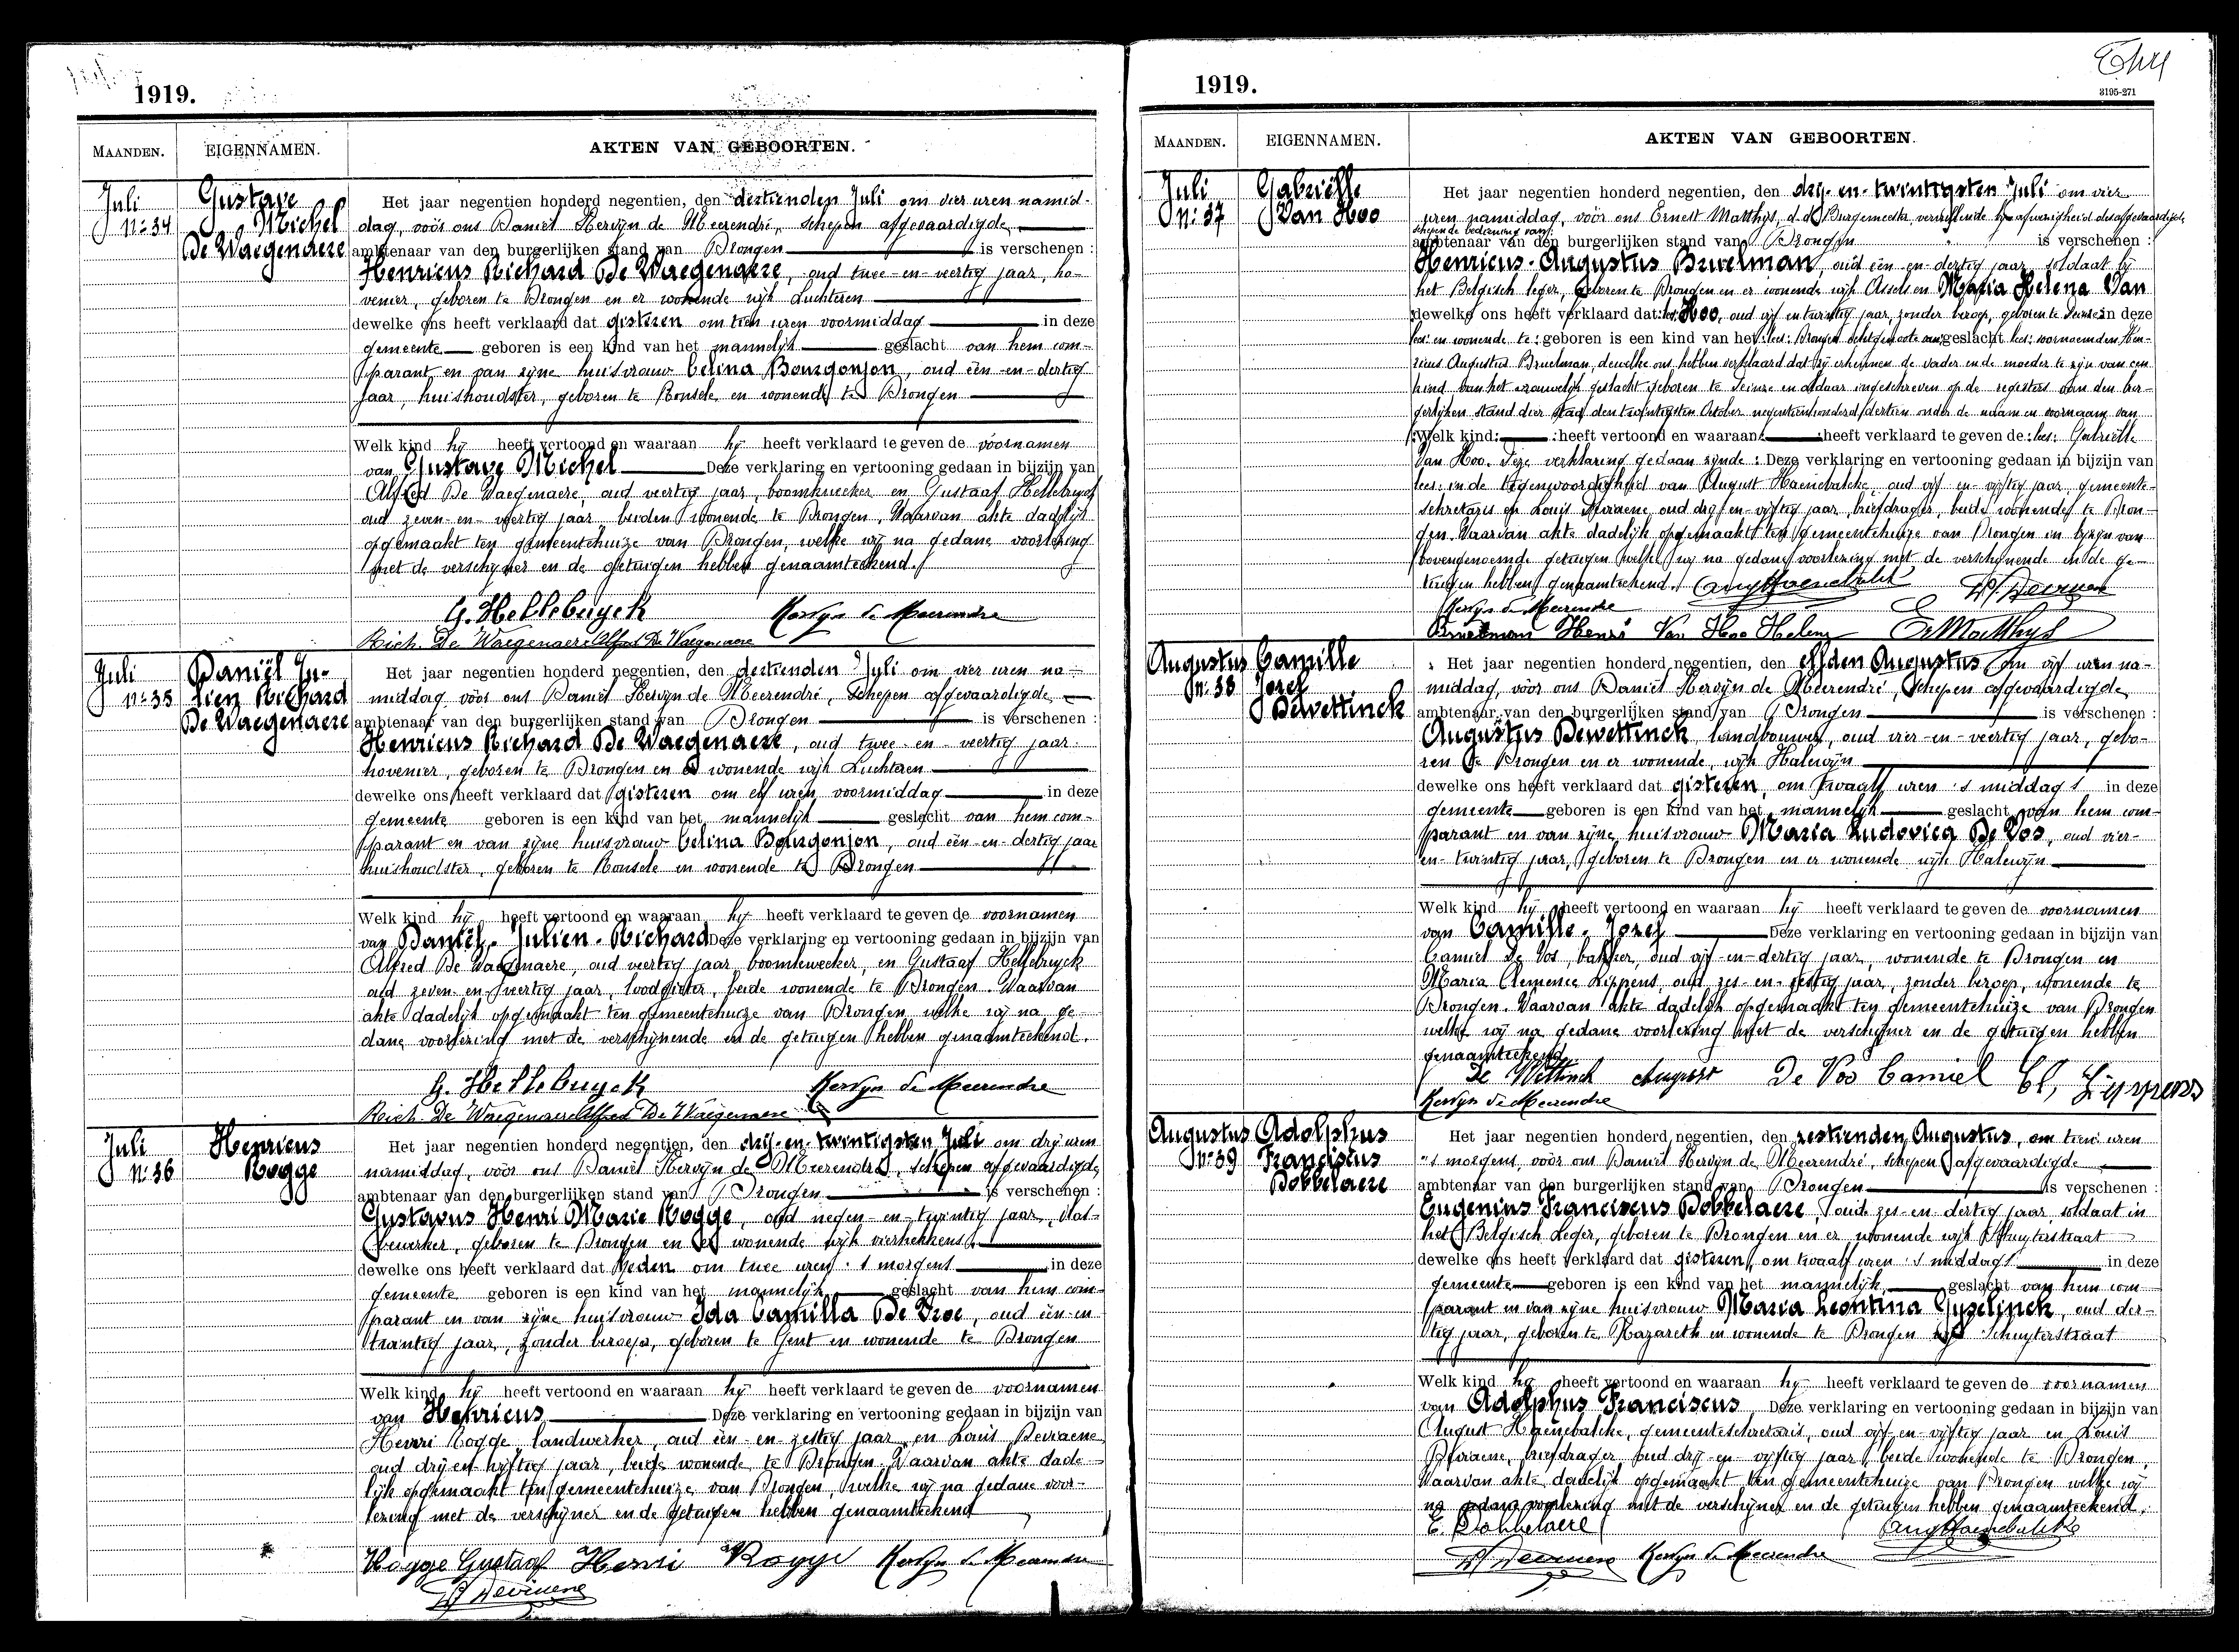 1919.
MAANDEN. EIGENNAMEN. AKTEN VAN GEBOORTEN.
Juli
Nr 34
Gustave
Michel
De Waegenaere
Het jaar negentien honderd negentien, den dertienden Juli om vier uren namid-
dag, voor ons Daniël Kervyn de Meerendré, schepen afgevaardigde
ambtenaar van den burgerlijken stand van Drongen is verschenen :
Henricus Richard De Waegenaere, oud twee-en-veertig jaar, ho-
venier, geboren te Drongen en er wonende wijk Luchteren
dewelke ons heeft verklaard dat gisteren om tien uren voormiddag in deze
gemeente geboren is een kind van het mannelijk geslacht van hem com-
parant en van zijne huisvrouw Celina Bourgonjon, oud één-en-dertig
jaar, huishoudster, geboren te Ronsele en wonende te Drongen
Welk kind hij heeft vertoond en waaraan hij heeft verklaard te geven de voornamen
van Gustave Michel Deze verklaring en vertooning gedaan in bijzijn van
Alfred De Waegenaere, oud veertig jaar, boomkweeker en Gustaaf Hellebuyck
oud zeven-en-veertig jaar, beiden wonende te Drongen. Waarvan akte dadelijk
opgemaakt ten gemeentehuize van Drongen, welke wij na gedane voorlezing
met de verschijner en de getuigen hebben genaamteekend.
G. Hellebuyck Kervyn de Meerendre
Rich. De Waegenaere Alfred De Waegenaere
Juli
Nr 35
Daniël Ju-
lien Richard
De Waegenaere
Het jaar negentien honderd negentien, den dertienden Juli om vier uren na-
middag voor ons Daniël Kervyn de Meerendré, schepen afgevaardigde
ambtenaar van den burgerlijken stand van Drongen is verschenen :
Henricus Richard De Waegenaere, oud twee-en-veertig jaar
hovenier, geboren te Drongen en er wonende wijk Luchteren
dewelke ons heeft verklaard dat gisteren om elf uren voormiddag in deze
gemeente geboren is een kind van het mannelijk geslacht van hem com-
parant en van zijne huisvrouw Celina Bourgonjon, oud één-en-dertig jaar
huishoudster, geboren te Ronsele en wonende te Drongen
Welk kind hij heeft vertoond en waaraan hij heeft verklaard te geven de voornamen
van Daniël-Julien-Richard Deze verklaring en vertooning gedaan in bijzijn van
Alfred De Waegenaere, oud veertig jaar boomkweeker, en Gustaaf Hellebuyck
oud zeven-en-veertig jaar, loodgieter, beide wonende te Drongen. Waarvan
akte dadelijk opgemaakt ten gemeentehuize van Drongen welke wij na ge-
dane voorlezing met de verschijnende en de getuigen hebben genaamteekend.
G. Hellebuyck Kervyn de Meerendre
Rich. De Waegenaere Alfred De Waegenaere
Juli
Nr 36
Henricus
Rogge
Het jaar negentien honderd negentien, den drij-en-twintigsten Juli om drij uren
namiddag, voor ons Daniël Kervyn de Meerendré, schepen afgevaardigde
ambtenaar van den burgerlijken stand van Drongen is verschenen :
Gustavus Henri Marie Rogge, oud negen-en-twintig jaar,
bewerker, geboren te Drongen en er wonende wijk vierhekkens
dewelke ons heeft verklaard dat heden om twee uren 's morgens in deze
gemeente geboren is een kind van het mannelijk geslacht van hem com-
parant en van zijne huisvrouw Ida Camilla De Vroe, oud één-en-
twintig jaar, zonder beroep, geboren te Gent en wonende te Drongen
Welk kind hij heeft vertoond en waaraan hij heeft verklaard te geven de voornamen
van Henricus Deze verklaring en vertooning gedaan in bijzijn van
Henri Rogge, landwerker, oud één-en-zestig jaar en Louis
oud drij en vijftig jaar, beide wonende te Drongen. Waarvan akte dade-
lijk opgemaakt ten gemeentehuize van Drongen, welke wij na gedane voor-
lezing met de verschijner en de getuigen hebben genaamteekend
Rogge Gustaaf Henri Rogge Kervyn de Meerendre
1919.
3195-271
MAANDEN. EIGENNAMEN. AKTEN VAN GEBOORTEN.
Juli
Nr 37
Gabriëlle
Van Hoo
Het jaar negentien honderd negentien, den drij-en-twintigsten Juli om vier
uren namiddag, voor ons Ernest Matthys, d.d. Burgemeester, vervullende bij afwezigheid des afgevaardigde
schepene de bediening van
ambtenaar van den burgerlijken stand van Drongen is verschenen :
Henricus-Augustus Bruelman, oud één-en-dertig jaar, soldaat bij
het Belgisch leger, geboren te Drongen en er wonende wijk Assels en Maria Helena Van
dewelke ons heeft verklaard dat: lees: Hoo, oud vijf en twintig jaar, zonder beroep, geboren te Deinze in deze
lees: en wonende te: geboren is een kind van het: lees: Drongen echtgenoote van: geslacht lees: voornoemden Hen-
ricus Augustus Bruelman, dewelke ons hebben verklaard dat zij erkennen de vader en de moeder te zijn van een
kind van het vrouwelijk geslacht geboren te Deinze en aldaar ingeschreven op de registers van den bur-
gerlijken stand dier stad den twintigsten October negentienhonderd dertien onder de naam en voornaam van
Welk kind: :heeft vertoond en waaraan: :heeft verklaard te geven de: lees: Gabriëlle
Van Hoo. Deze verklaring gedaan zijnde : Deze verklaring en vertooning gedaan in bijzijn van
lees: in de tegenwoordigheid van August Haenebalcke, oud vijf-en-vijftig jaar, gemeente-
sekretaris en Louis oud drij-en-vijftig jaar, briefdrager, beide wonende te Dron-
gen. Waarvan akte dadelijk opgemaakt ten gemeentehuize van Drongen in bijzijn van
bovengenoemde getuigen welke wij na gedane voorlezing met de verschijnende en de ge-
tuigen hebben genaamteekend. Aug Haenebalcke
Kervyn de Meerendre
Bruelman Henri Van Hoo Helena E. Matthys
Augustus
Nr 38
Camille
Jozef
Dewettinck
Het jaar negentien honderd negentien, den elfden Augustus om vijf uren na-
middag, voor ons Daniël Kervyn de Meerendré, Schepen afgevaardigde
ambtenaar van den burgerlijken stand van Drongen is verschenen :
Augustus Dewettinck, landbouwer, oud vier-en-veertig jaar, gebo-
ren te Drongen en er wonende, wijk Halewijn
dewelke ons heeft verklaard dat gisteren, om twaalf uren 's middags in deze
gemeente geboren is een kind van het mannelijk geslacht van hem com-
parant en van zijne huisvrouw Maria Ludovica De Vos, oud vier-
en-twintig jaar, geboren te Drongen en er wonende wijk Halewijn
Welk kind hij heeft vertoond en waaraan hij heeft verklaard te geven de voornamen
van Camille-Jozef Deze verklaring en vertooning gedaan in bijzijn van
Camiel De Vos, bakker, oud vijf-en-dertig jaar, wonende te Drongen en
Maria Clemence Lippens, oud zes-en-zestig jaar, zonder beroep, wonende te
Drongen. Waarvan akte dadelijk opgemaakt ten gemeentehuize van Drongen
welke wij na gedane voorlezing met de verschijner en de getuigen hebben
genaamteekend
De Wettinck August De Vos Camiel Cl, Lippens
Kervyn de Meerendre
Augustus
Nr 39
Adolphus
Franciscus
Dobbelaere
Het jaar negentien honderd negentien, den zestienden Augustus, om tien uren
's morgens, voor ons Daniël Kervyn de Meerendré, schepen afgevaardigde
ambtenaar van den burgerlijken stand van Drongen is verschenen :
Eugenius Franciscus Dobbelaere, oud zes-en-dertig jaar, soldaat in
het Belgisch Leger, geboren te Drongen en er wonende wijk Schuyterstraat
dewelke ons heeft verklaard dat gisteren, om twaalf uren 's middags in deze
gemeente geboren is een kind van het mannelijk geslacht van hem com-
parant en van zijne huisvrouw Maria Leontina Gyselinck, oud der-
tig jaar, geboren te Nazareth en wonende te Drongen wijk Schuyterstraat
Welk kind hij heeft vertoond en waaraan hij heeft verklaard te geven de voornamen
van Adolphus Franciscus Deze verklaring en vertooning gedaan in bijzijn van
August Haenebalcke, gemeentesekretaris, oud vijf-en-vijftig jaar en Louis
briefdrager, oud drij-en-vijftig jaar, beide wonende te Drongen,
Waarvan akte dadelijk opgemaakt ten gemeentehuize van Drongen welke wij
na gedane voorlezing met de verschijner en de getuigen hebben genaamteekend.
E. Dobbelaere Aug Haenebalcke
Kervyn de Meerendre